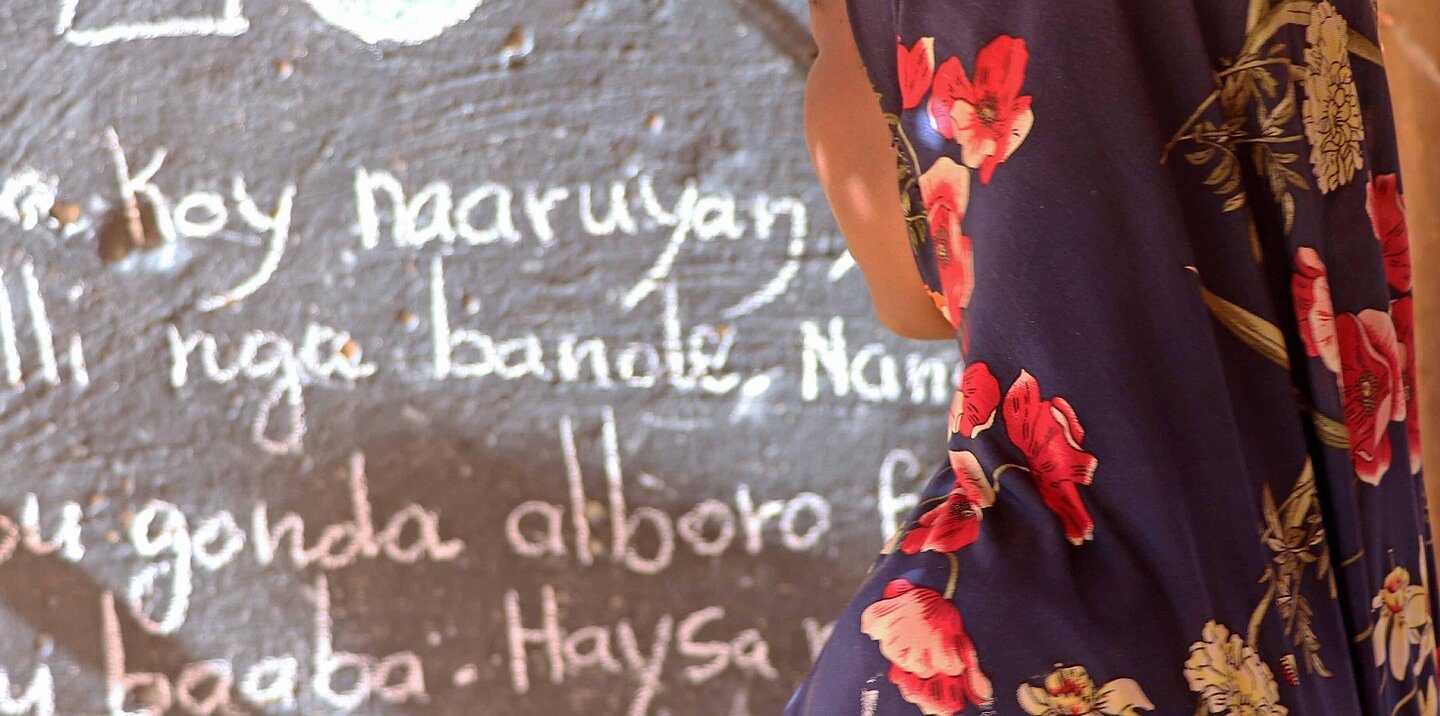 koy naaruyan,
nga bande. Nan
gonda alboro
baaba. Haysa